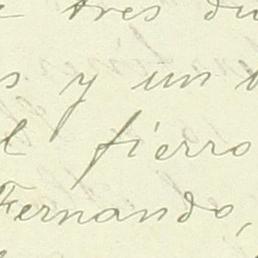 tres
y un
fierro
Fernando,